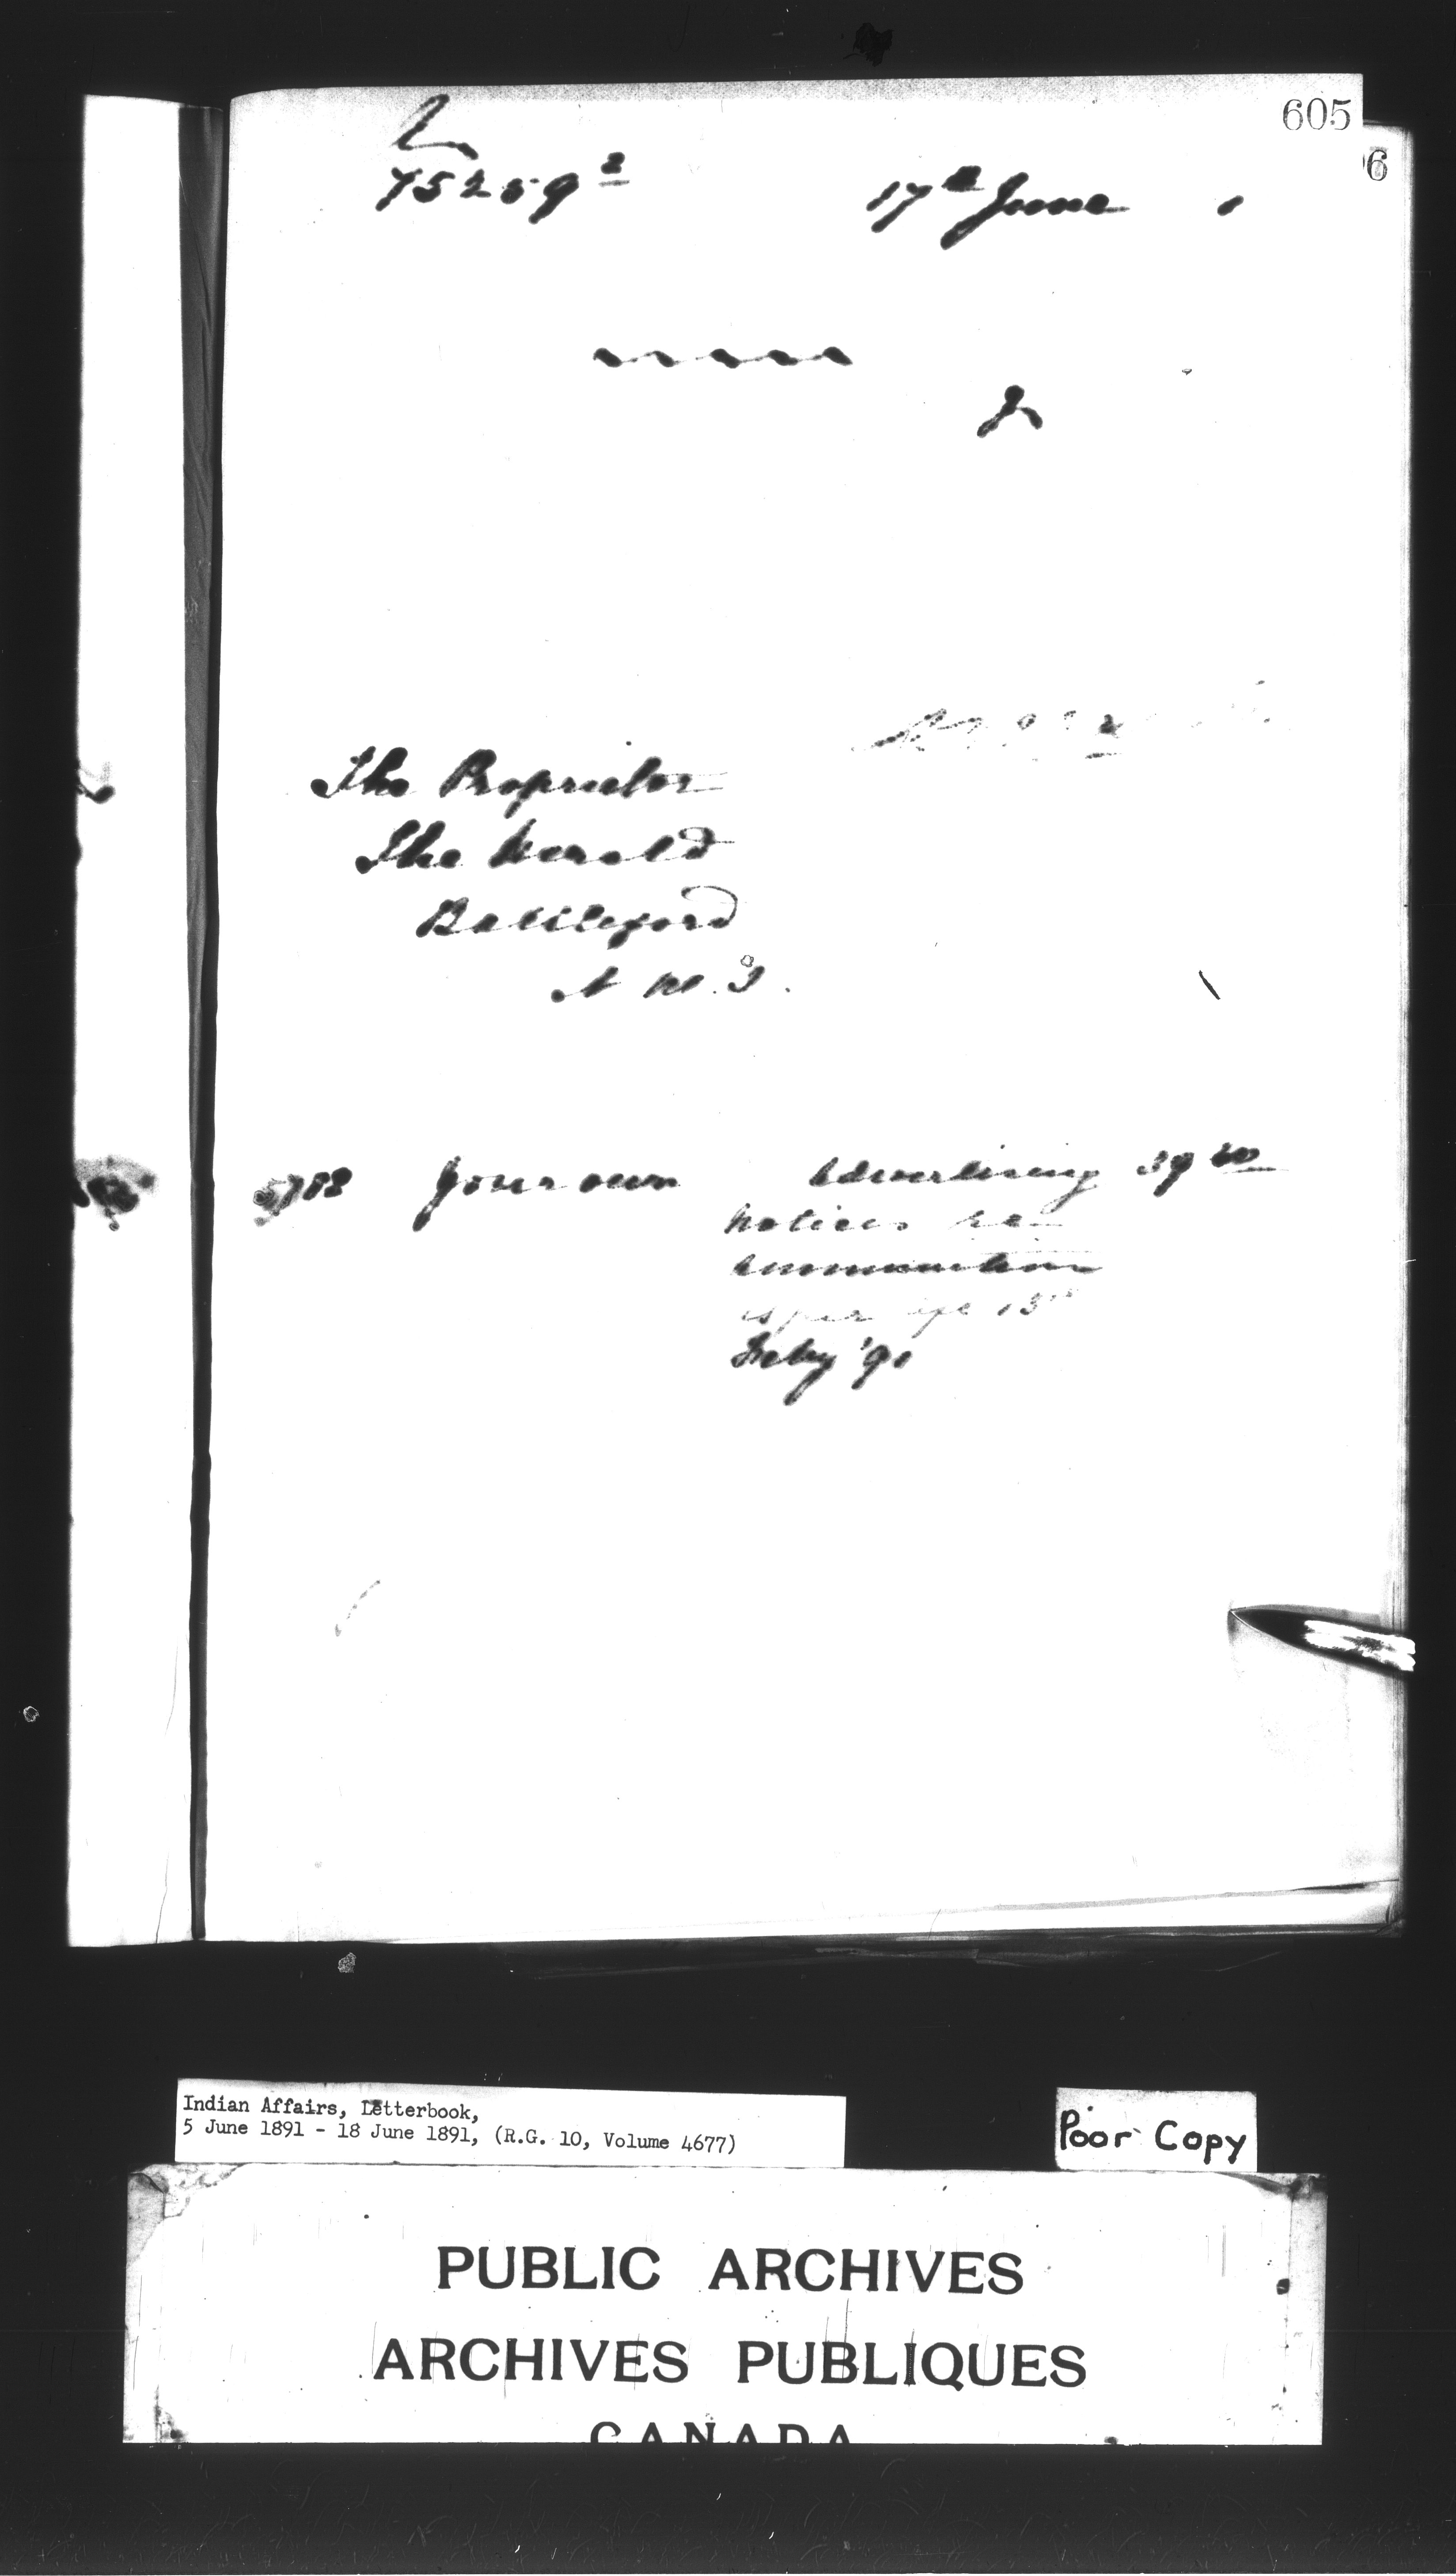 605
6
L
75259 2
17th June 1
The Proprietor
The Herald
Battleford
N. W. T.
5788 Your own Advertising 39 20
notices re
ammunition
as per a/c 13th
Feby '91
Indian Affairs, Letterbook,
5 June 1891 - 18 June 1891, (R.G. 10, Volume 4677)
Poor Copy
PUBLIC ARCHIVES
ARCHIVES PUBLIQUES
CANADA